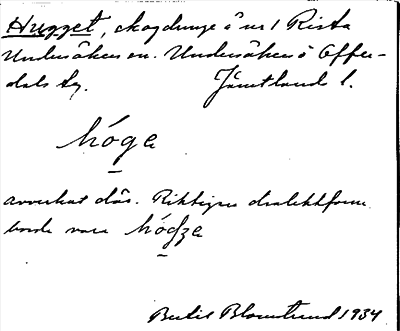 Hugget, skogdunge å nr 1 Rista
Undersåkers sn. Undersåkers o Offer-
dals tg. Jämtlands l.
hóge
avverkat dås. Riktigare dialektform
borde vara hódze
Bertil Blomstrand 1934